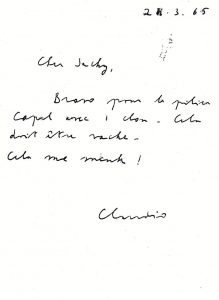 28.3.65
Cher Jacky,
Bravo pour la
Capel avec 1 clou. Cela
doit être vache.
Cela me !
Claudio